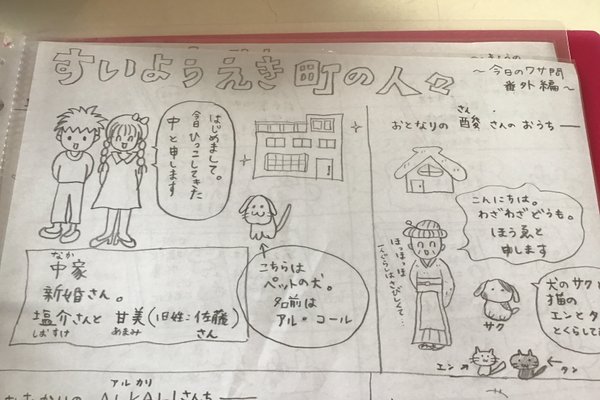 すいようえき町の人々
〜今日のワザ問
番外編〜
はじめまして。
今日ひっこしてきた
中と申します
中家
なか
新婚さん。
塩介さんと 甘美(旧姓:佐藤)
しおすけ あまみ さん
こちらは
ペットの犬。
名前は
アル・コール
おとなりの 酸さんのおうち
さん
こんにちは。
わざわざどうも。
ほう酸と
申します
ほっほっほっ
一人ぐらしはさびしくて…
サク
犬のサクと
猫の
エンとタン
とくらして
エン
タン
アルカリ
ALKALIさんち